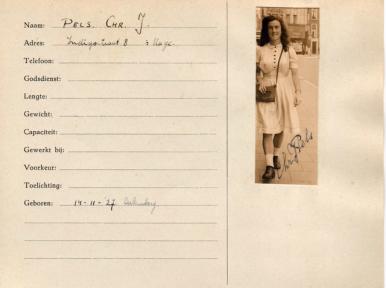 Naam: PELS, CHR. J.
Adres: 8 's Hage.
Telefoon:
Godsdienst:
Lengte:
Gewicht:
Capaciteit:
Gewerkt bij:
Voorkeur:
Toelichting:
Geboren: 14-11-27
Chr J Pels